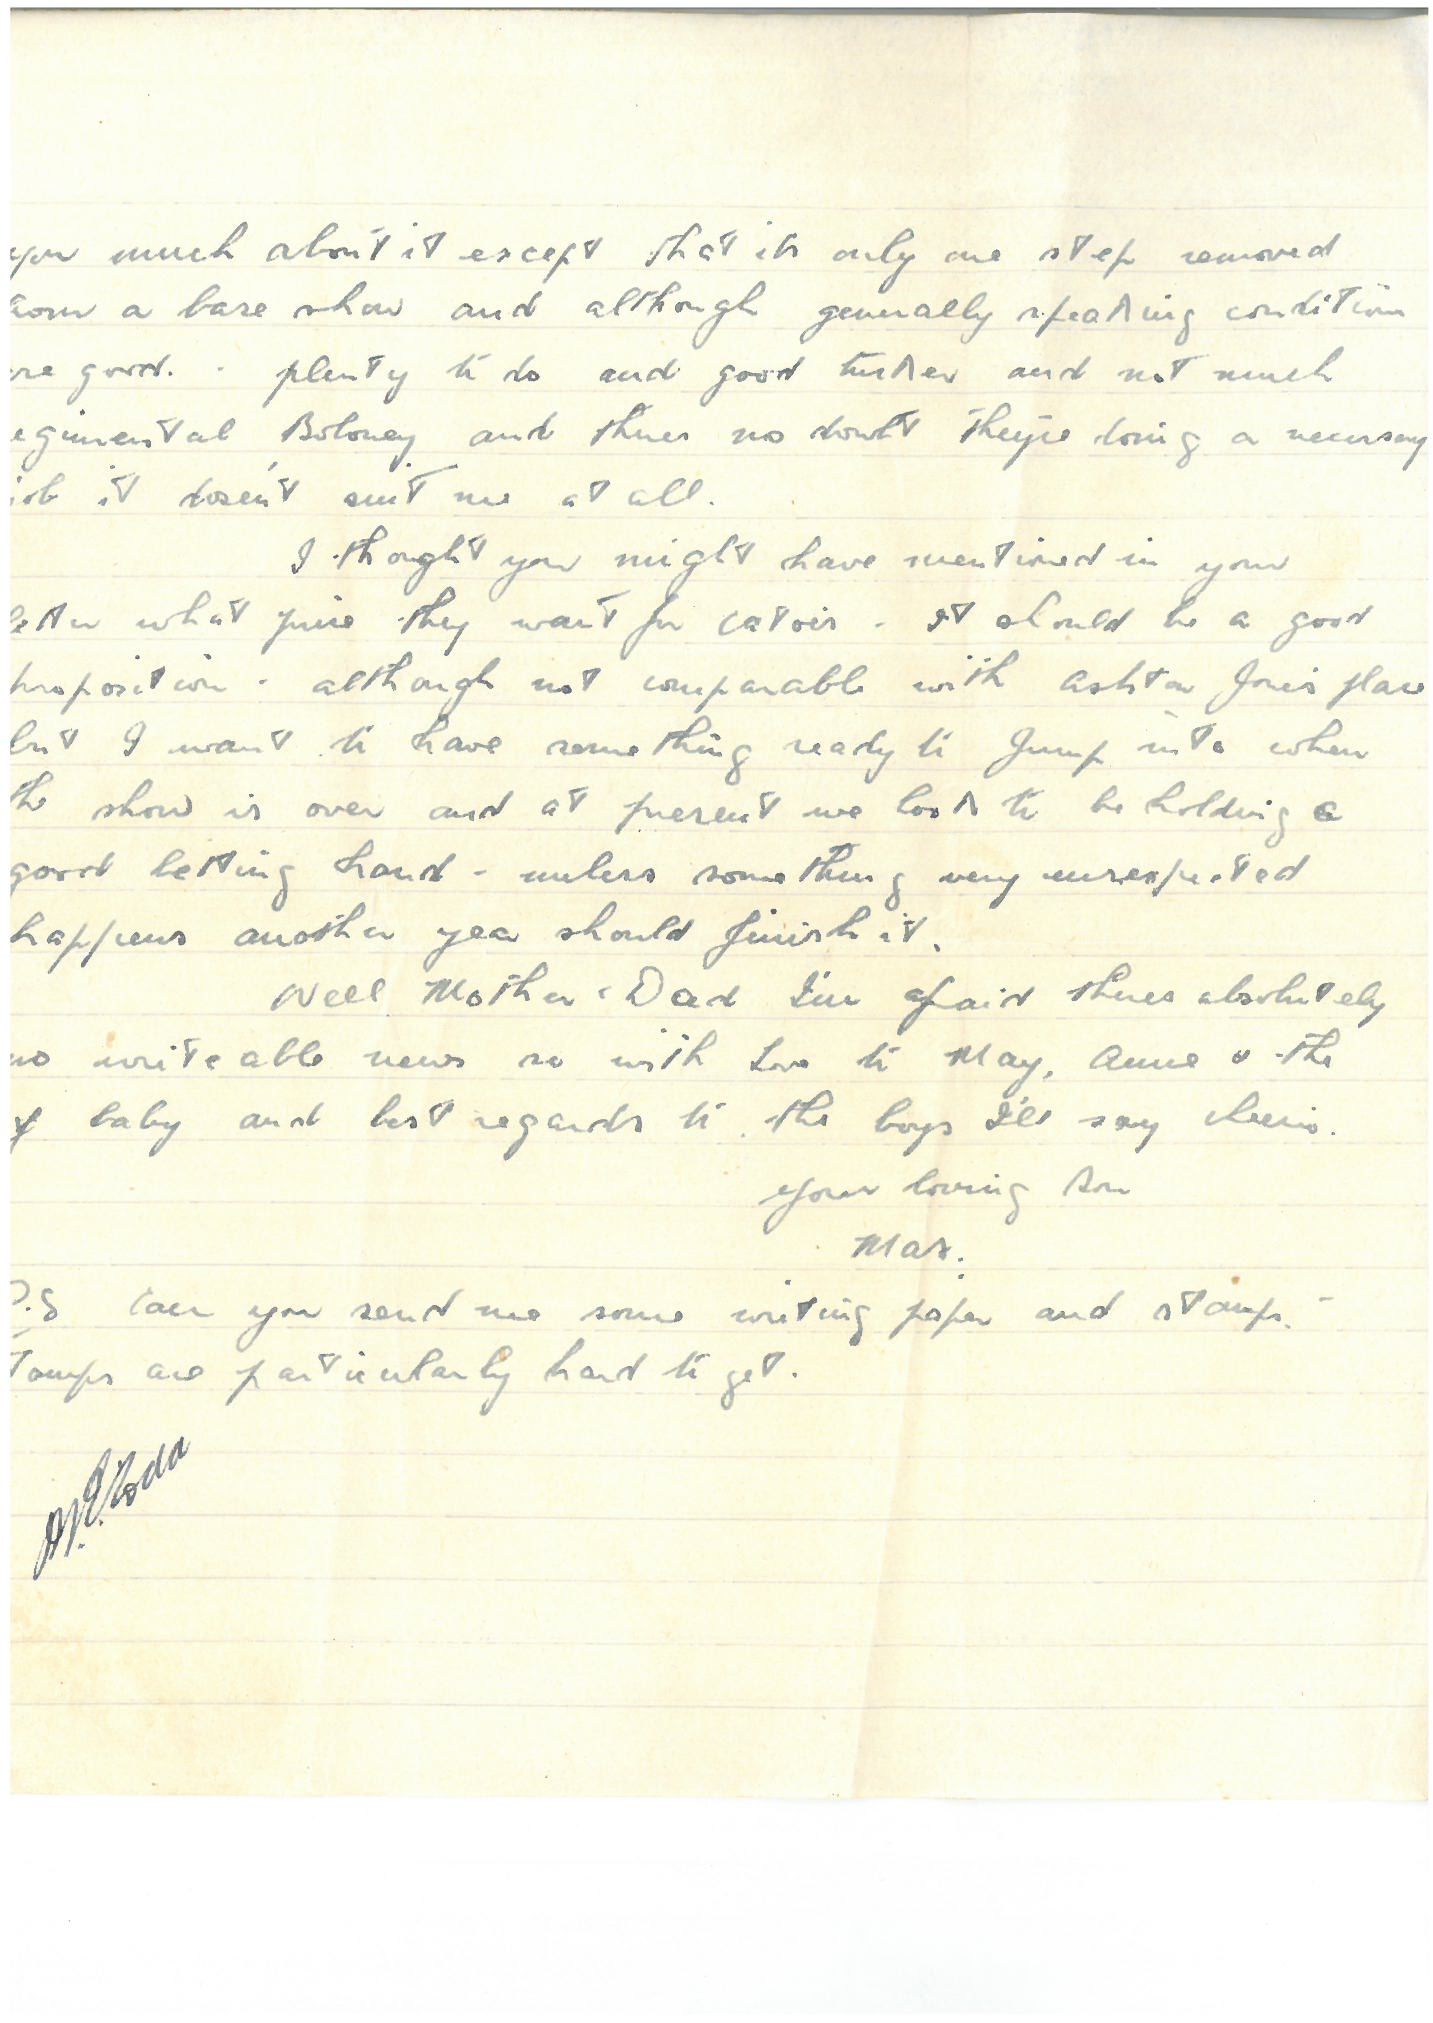 you much about it except that its only one step removed
from a base show and although generally speaking condition
are good. - plenty to do and good tucker and not much
egimental Boloney and theres no doubt they're doing a necessary
job it dosen't suit me at all.
I thought you might have mentioned in your
letter what price they want for - It should be a good
proposition - although not comparable with Ashton Jones place
but I want to have something ready to Jump into when
the show is over and at present we look to be holding a
good betting hand - unless something very unexpected
happens another year should finish it.
Well Mother & Dad I'm afraid theres absolutely
no writeable news so with Love to May, Anne & the
baby and best regards to the boys I'll say cheerio.
Your loving Son
Max.
P.S Can you send me some writing paper and stamps. -
tamps are particularly hard to get.